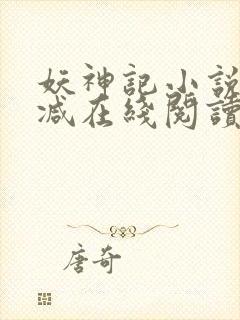 妖神记小説
减在綫閱讀
唐奇